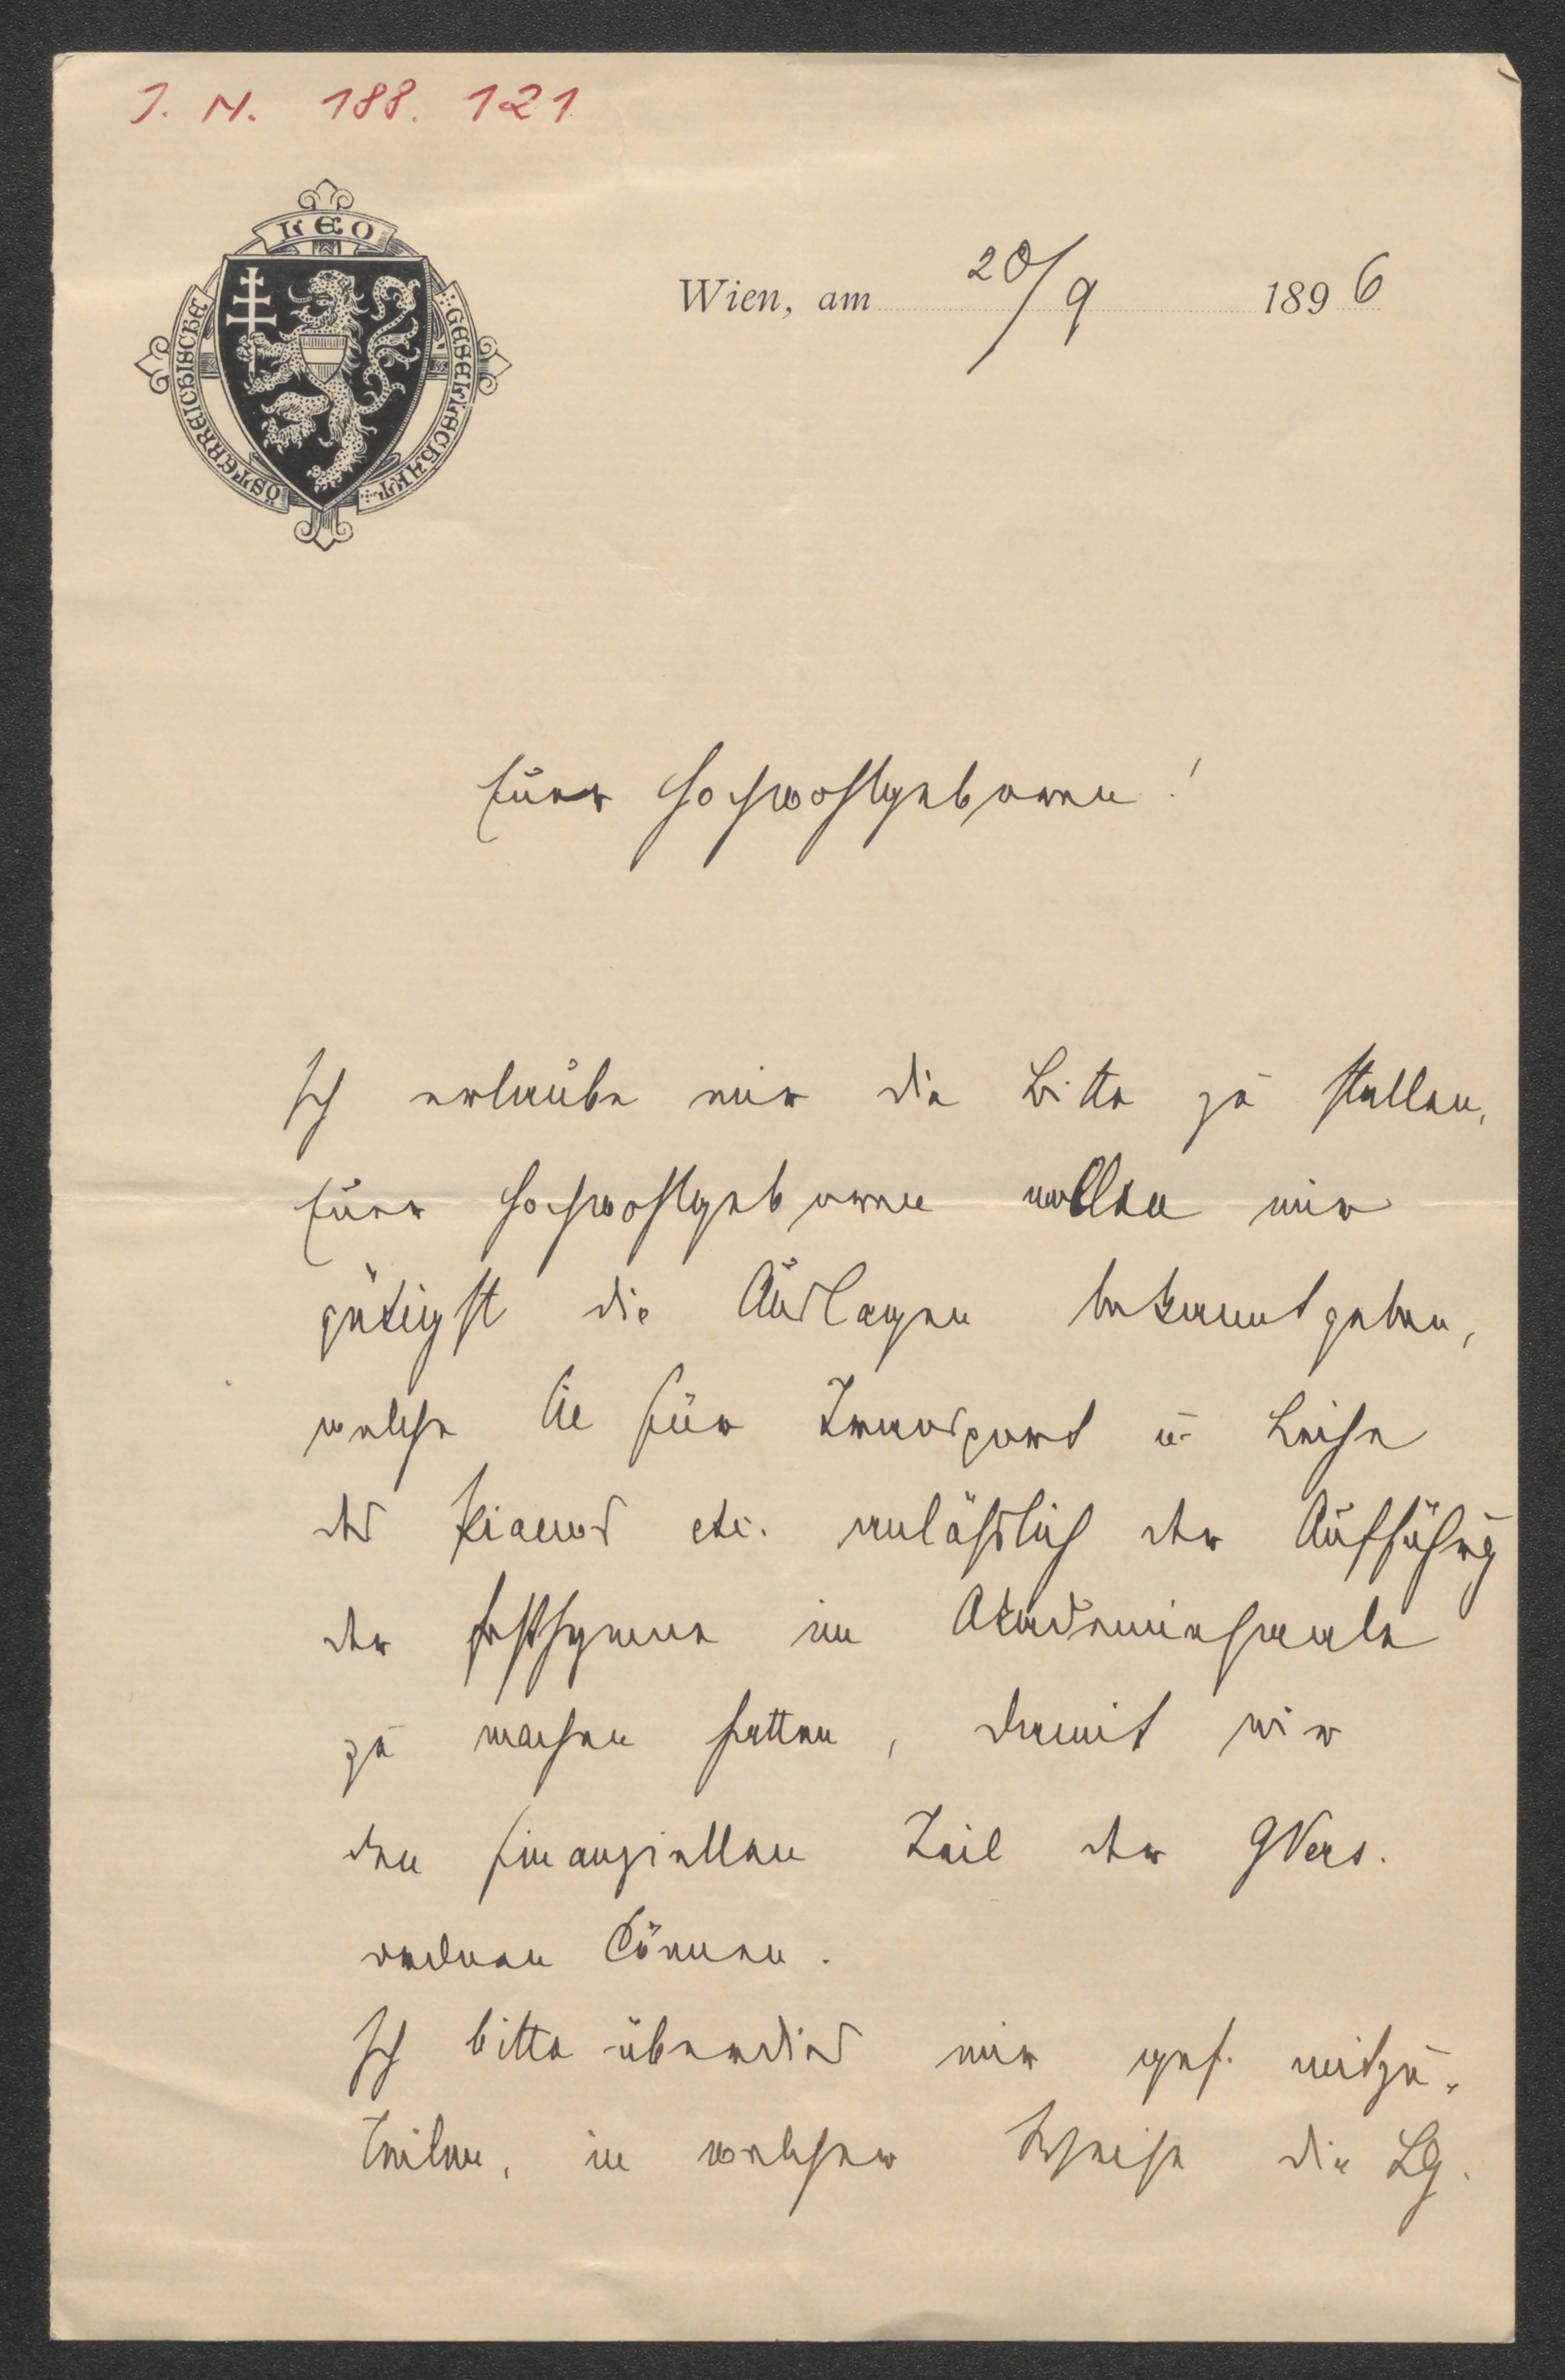 J. N. 188. 121
LEO
ÖSTERREICHISCHE
GESELLSCHAFT
Wien, am 20/9 1896
Euer Hochwohlgeboren!
Ich erlaube mir die Bitte zu stellen,
Euer Hochwohlgeboren wollen mir
gütigst die Auslagen bekanntgeben,
welche Sie für Transport u. Leihe
des Pianos etc. anläßlich der Aufführg
der Festhymne im Akademiesaale
zu machen hatten, damit wir
den finanziellen Teil der GVers.
ordnen können.
Ich bitte überdies mir gef. mitzu-
teilen, in welcher Weise die LG.